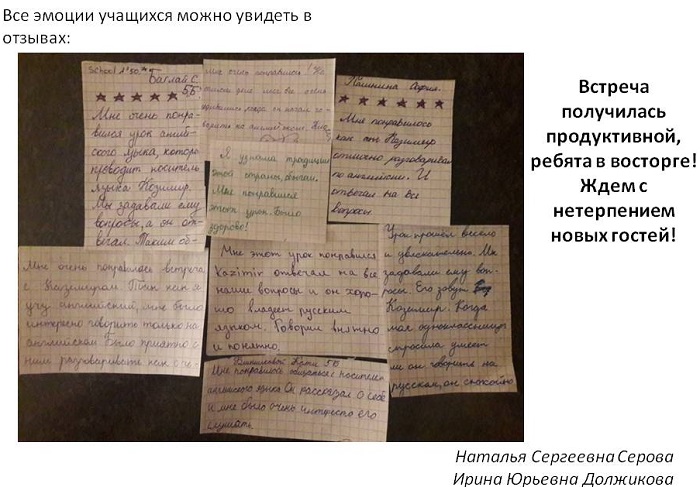 Все эмоции учащихся можно увидеть в
отзывах:
School № 50
Баглай С.
5Б
Мне очено понра-
вился урок англий-
ского языка, которы
проводит носитель
языка Козимир.
Мы задавали ему
вопросы, а он от-
вечал. Таким об-
Мне очень понравился
Я узнала традиции
этой страны, обычаи.
Мне понравился
этот урок. Было
здорово!
София.
Мне понравилось
как мы Казимир
отлично разговаривал
по английски. И
отвечал на все
вопросы
Мне очень понравилась встреча
с Казимиром. Так как я
учу английский, мне было
интересно говорить только на
английском. Было приятно с
ним разговаривать так как
Мне этот урок понравился
Kazimir отвечал на все
наши вопросы и он хоро-
шо владеет русским
языком. Говорил внятно
и понятно.
Урок прошёл весело
и увлекательно. Мы
задавали ему воп-
росы. Его зовут
Козимир. Когда
моя одноклассница
спросила умеет
ли он говорить на
русском, он спокойно
Кати 5Б
Мне понравилось общаться с носителем
английского языка Он рассказал о себе
и мне было очень интересно его
слушать
Встреча
получилась
продуктивной,
ребята в восторге!
Ждем с
нетерпением
новых гостей!
Наталья Сергеевна Серова
Ирина Юрьевна Должикова